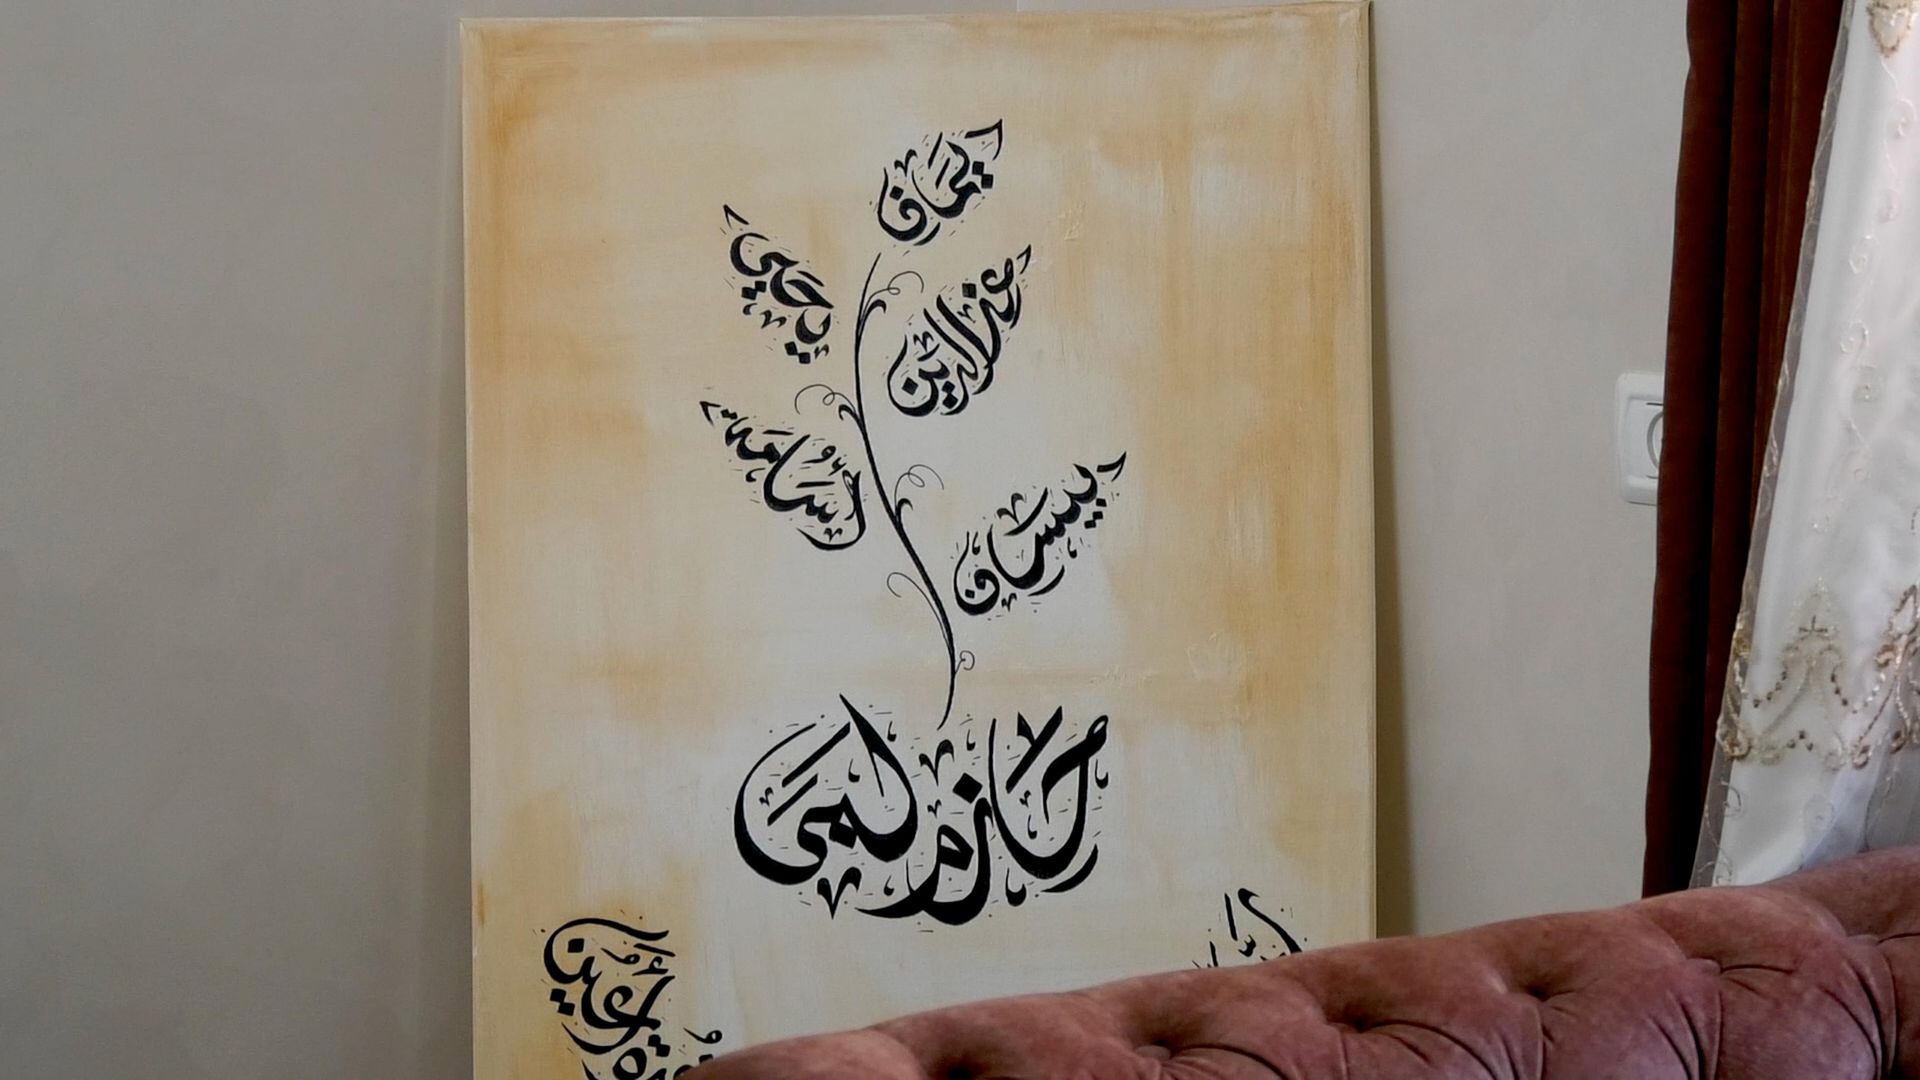 إيمان
يحيى
عز الدين
أسامة
بيسان
حازم لمى
قرة أعين